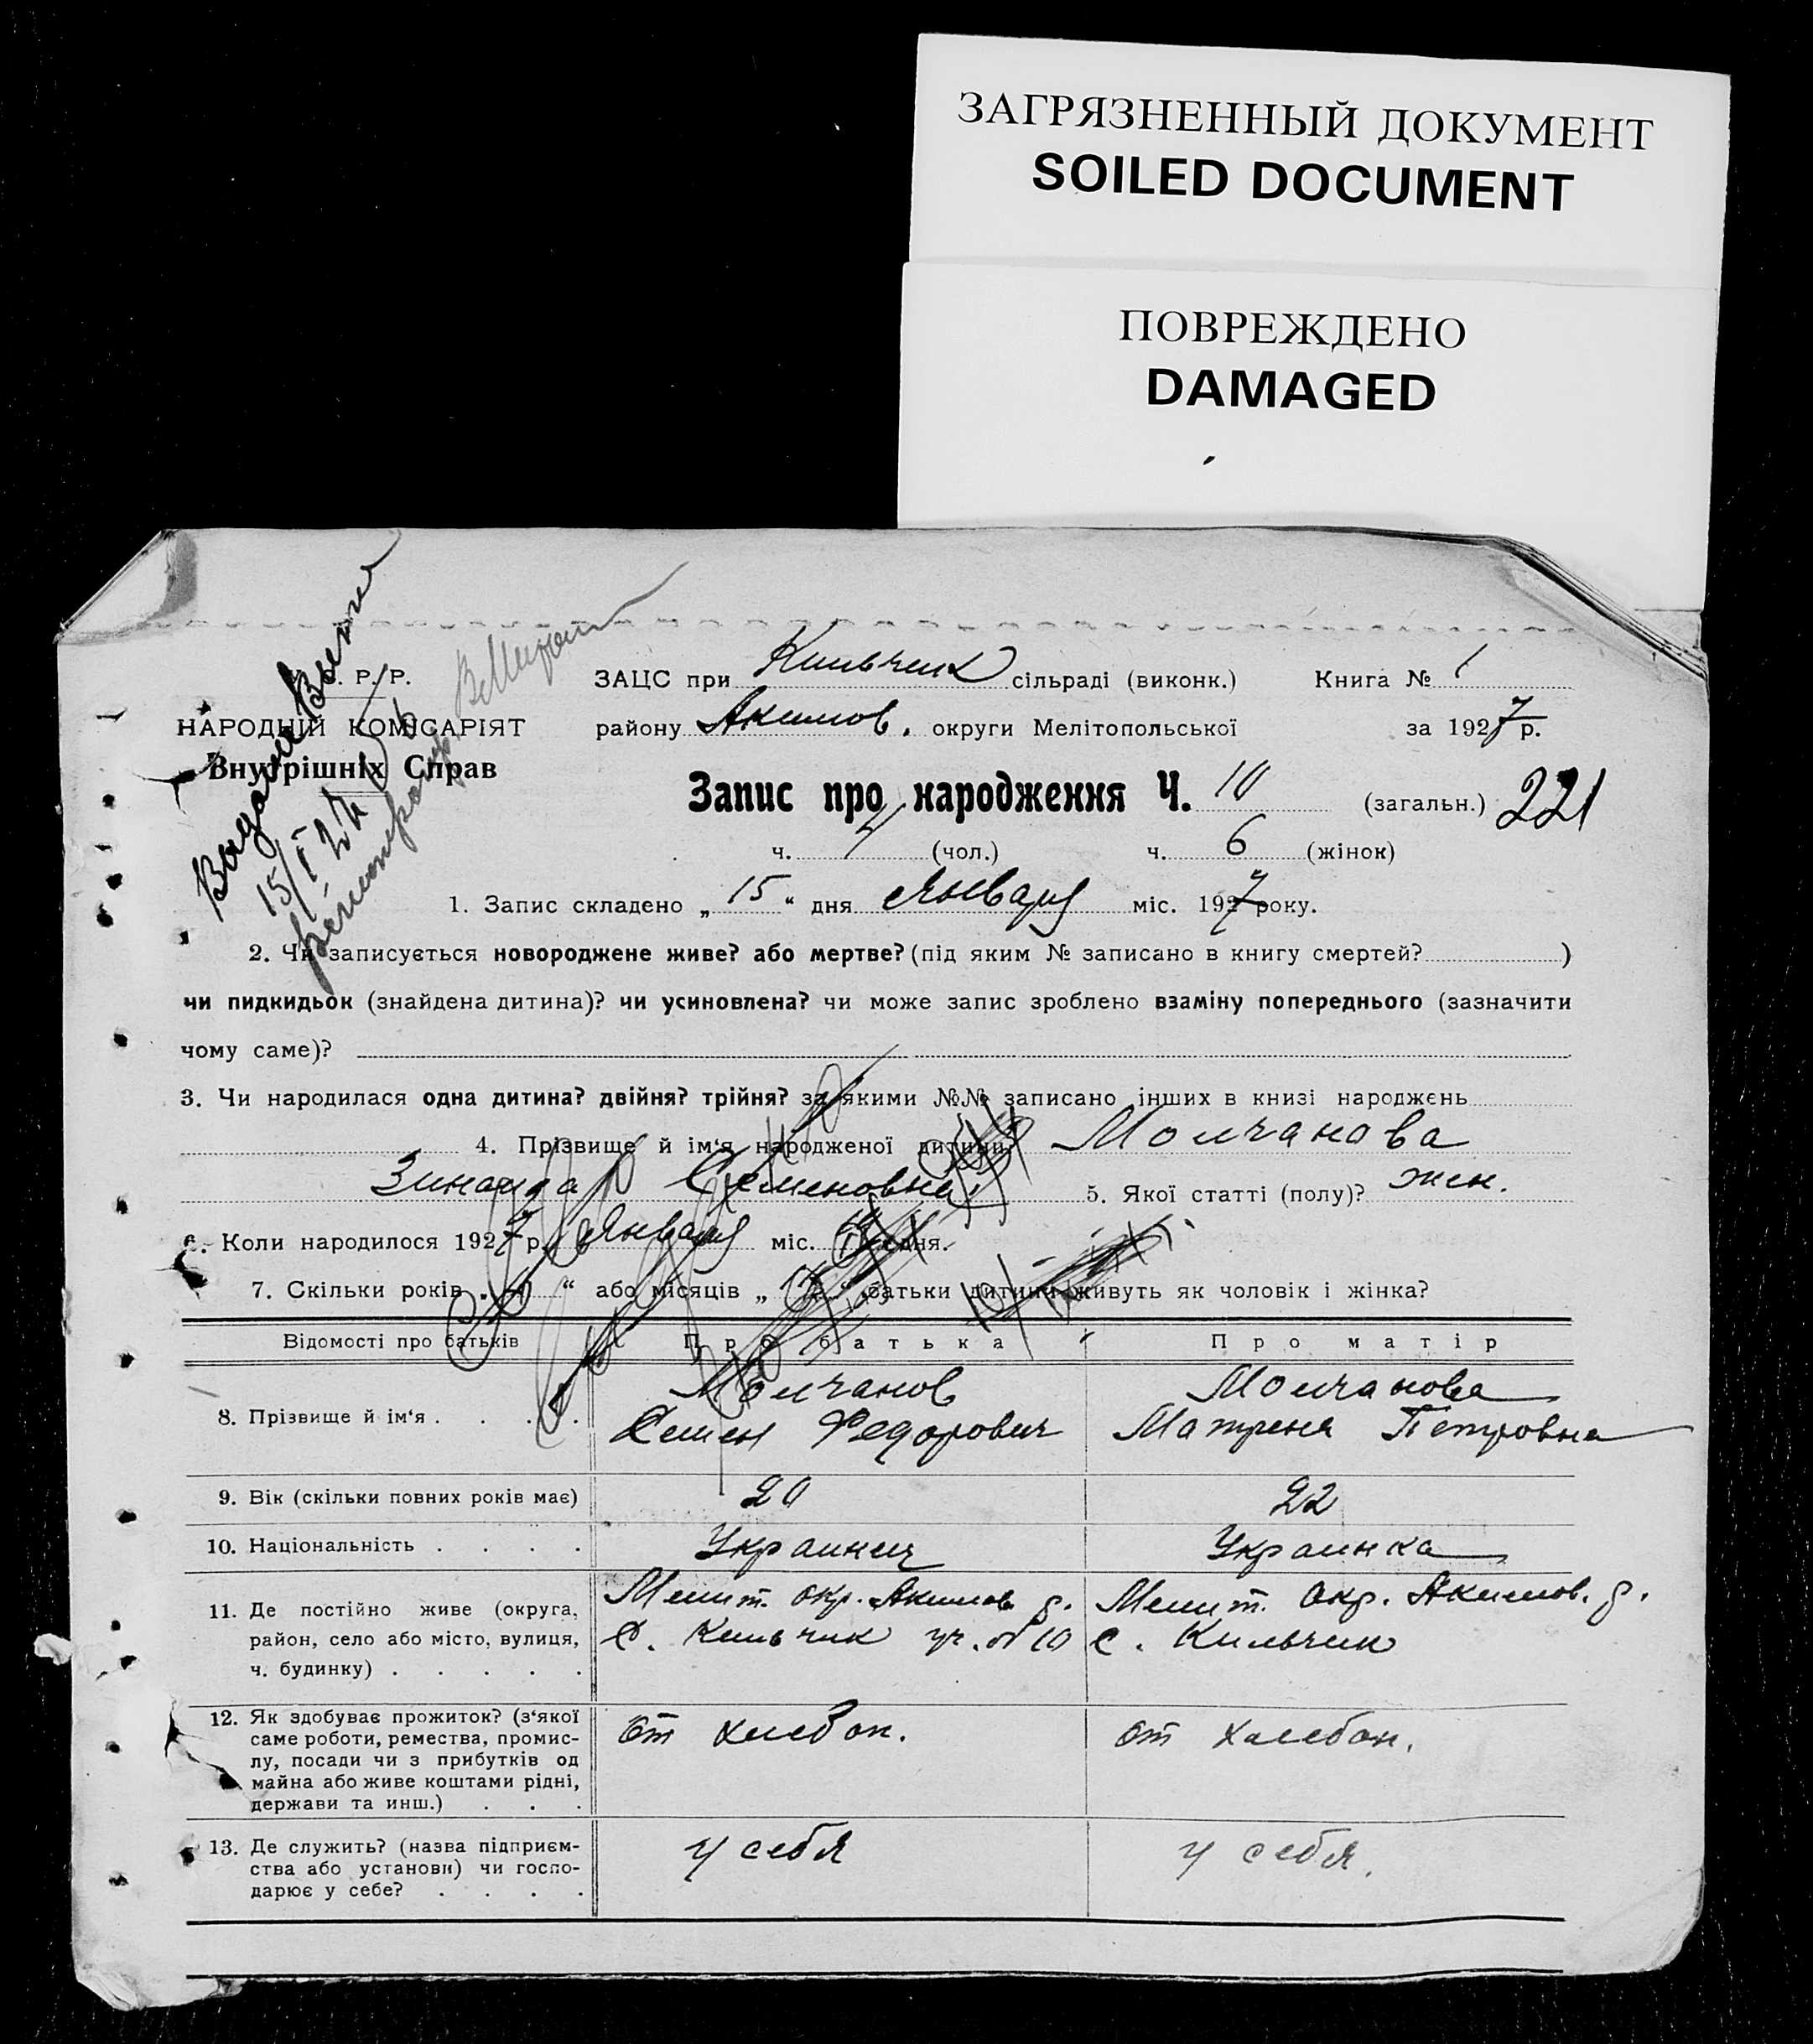 ЗАГРЯЗНЕННЫЙ ДОКУМЕНТ
SOILED DOCUMENT
ПОВРЕЖДЕНО
DAMAGED
С. Р. Р.
НАРОДНІЙ КОМІСАРІЯТ
Внутрішніх Справ
15/I 27
ЗАЦС при Кильчик сільраді (виконк.) Книга № 1
району Акимов. округи Мелітопольської за 1927 р.
Запис про народження Ч. 10 (загальн.) 221
ч. 4 (чол.) ч. 6 (жінок)
1. Запис складено „ 15 “ дня Января міс. 1927 року.
2. Чи записується новороджене живе? або мертве? (під яким № записано в книгу смертей? )
чи пидкидьок (знайдена дитина)? чи усиновлена? чи може запис зроблено взаміну попереднього (зазначити
чому саме)?
3. Чи народилася одна дитина? двійня? трійня? за якими №№ записано інших в книзі народжень
4. Прізвище й ім‘я народженої дитини Молчанова
Зинаида Семеновна 5. Якої статті (полу)? жен.
6. Коли народилося 1927 р. Января міс. дня.
7. Скільки років „ “ або місяців „ “ батьки дитини живуть як чоловік і жінка?
Відомості про батьків Про батька Про матір
8. Прізвище й ім‘я . . . . Молчанов Семен Федорович Молчанова Матрена Петровна
9. Вік (скільки повних років має) 20 22
10. Національність . . . . Украинец Украинка
11. Де постійно живе (округа, Мелит. окр. Акимов р. Мелит. окр. Акимов. р.
район, село або місто, вулиця, с. Кильчик уч. № 10 с. Кильчик
ч. будинку) . . . . .
12. Як здобуває прожиток? (з‘якої
саме роботи, ремества, промис- от хлебоп. от хлебоп.
лу, посади чи з прибутків од
майна або живе коштами рідні,
держави та инш.) . . .
13. Де служить? (назва підприєм- у себя у себя.
ства або установи) чи госпо-
дарює у себе? . . . .